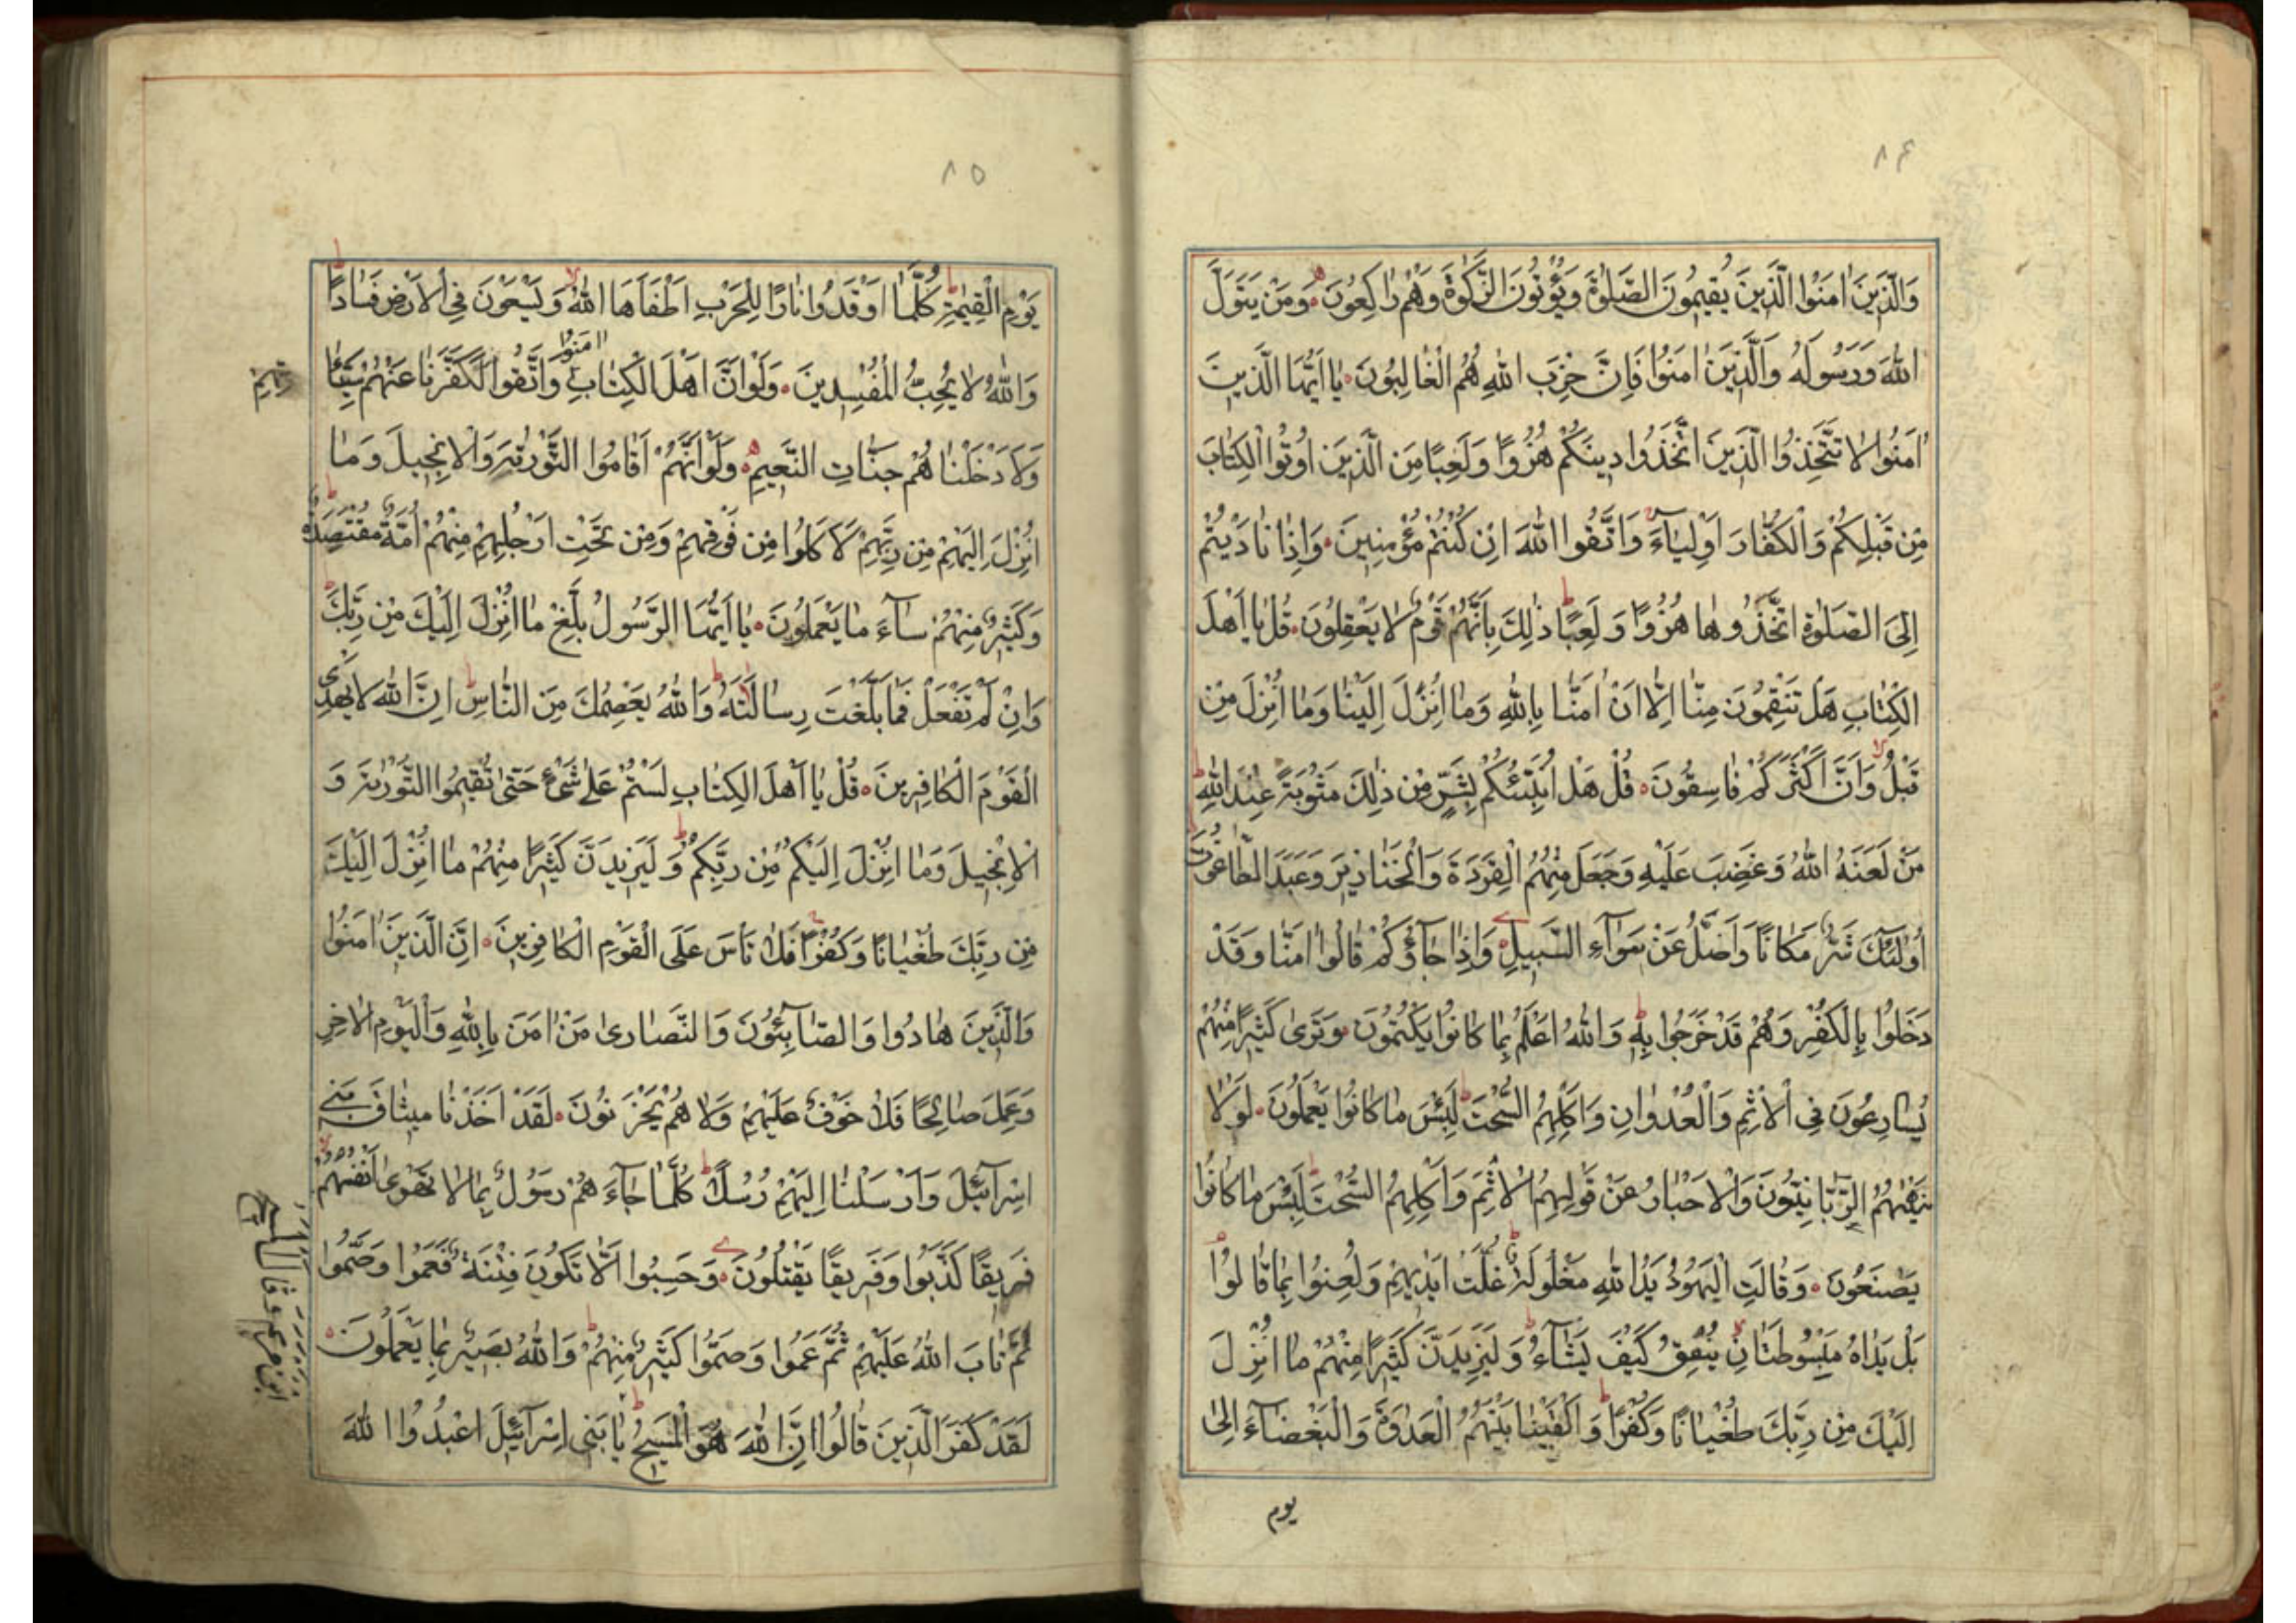 ۸۴
وَالَّذِينَ اٰمَنُوا الَّذِينَ يُقِيمُونَ الصَّلٰوةَ وَيُؤْتُونَ الزَّكٰوةَ وَهُمْ رَاكِعُونَ وَمَنْ يَتَوَلَّ
اللّٰهَ وَرَسُولَهُ وَالَّذِينَ اٰمَنُوا فَاِنَّ حِزْبَ اللّٰهِ هُمُ الْغَالِبُونَ يَا اَيُّهَا الَّذِينَ
اٰمَنُوا لَا تَتَّخِذُوا الَّذِينَ اتَّخَذُوا دِينَكُمْ هُزُوًا وَلَعِبًا مِنَ الَّذِينَ اُوتُوا الْكِتَابَ
مِنْ قَبْلِكُمْ وَالْكُفَّارَ اَوْلِيَآءَ وَاتَّقُوا اللّٰهَ اِنْ كُنْتُمْ مُؤْمِنِينَ وَاِذَا نَادَيْتُمْ
اِلَى الصَّلٰوةِ اتَّخَذُوهَا هُزُوًا وَلَعِبًا ذٰلِكَ بِاَنَّهُمْ قَوْمٌ لَا يَعْقِلُونَ قُلْ يَا اَهْلَ
الْكِتَابِ هَلْ تَنْقِمُونَ مِنَّا اِلَّا اَنْ اٰمَنَّا بِاللّٰهِ وَمَا اُنْزِلَ اِلَيْنَا وَمَا اُنْزِلَ مِنْ
قَبْلُ وَاَنَّ اَكْثَرَكُمْ فَاسِقُونَ قُلْ هَلْ اُنَبِّئُكُمْ بِشَرٍّ مِنْ ذٰلِكَ مَثُوبَةً عِنْدَ اللّٰهِ
مَنْ لَعَنَهُ اللّٰهُ وَغَضِبَ عَلَيْهِ وَجَعَلَ مِنْهُمُ الْقِرَدَةَ وَالْخَنَازِيرَ وَعَبَدَ الطَّاغُوتَ
اُولٰئِكَ شَرٌّ مَكَانًا وَاَضَلُّ عَنْ سَوَآءِ السَّبِيلِ وَاِذَا جَآؤُكُمْ قَالُوا اٰمَنَّا وَقَدْ
دَخَلُوا بِالْكُفْرِ وَهُمْ قَدْ خَرَجُوا بِهِ وَاللّٰهُ اَعْلَمُ بِمَا كَانُوا يَكْتُمُونَ وَتَرٰى كَثِيرًا مِنْهُمْ
يُسَارِعُونَ فِى الْاِثْمِ وَالْعُدْوَانِ وَاَكْلِهِمُ السُّحْتَ لَبِئْسَ مَا كَانُوا يَعْمَلُونَ لَوْلَا
يَنْهٰهُمُ الرَّبَّانِيُّونَ وَالْاَحْبَارُ عَنْ قَوْلِهِمُ الْاِثْمَ وَاَكْلِهِمُ السُّحْتَ لَبِئْسَ مَا كَانُوا
يَصْنَعُونَ وَقَالَتِ الْيَهُودُ يَدُ اللّٰهِ مَغْلُولَةٌ غُلَّتْ اَيْدِيهِمْ وَلُعِنُوا بِمَا قَالُوا
بَلْ يَدَاهُ مَبْسُوطَتَانِ يُنْفِقُ كَيْفَ يَشَآءُ وَلَيَزِيدَنَّ كَثِيرًا مِنْهُمْ مَا اُنْزِلَ
اِلَيْكَ مِنْ رَبِّكَ طُغْيَانًا وَكُفْرًا وَاَلْقَيْنَا بَيْنَهُمُ الْعَدَاوَةَ وَالْبَغْضَآءَ اِلٰى
يوم
۸۵
يَوْمِ الْقِيٰمَةِ كُلَّمَا اَوْقَدُوا نَارًا لِلْحَرْبِ اَطْفَاَهَا اللّٰهُ وَيَسْعَوْنَ فِى الْاَرْضِ فَسَادًا
وَاللّٰهُ لَا يُحِبُّ الْمُفْسِدِينَ وَلَوْ اَنَّ اَهْلَ الْكِتَابِ اٰمَنُوا وَاتَّقَوْا لَكَفَّرْنَا عَنْهُمْ سَيِّئَا
تِهِمْ
وَلَاَدْخَلْنَاهُمْ جَنَّاتِ النَّعِيمِ وَلَوْ اَنَّهُمْ اَقَامُوا التَّوْرٰيةَ وَالْاِنْجِيلَ وَمَا
اُنْزِلَ اِلَيْهِمْ مِنْ رَبِّهِمْ لَاَكَلُوا مِنْ فَوْقِهِمْ وَمِنْ تَحْتِ اَرْجُلِهِمْ مِنْهُمْ اُمَّةٌ مُقْتَصِدَةٌ
وَكَثِيرٌ مِنْهُمْ سَآءَ مَا يَعْمَلُونَ يَا اَيُّهَا الرَّسُولُ بَلِّغْ مَا اُنْزِلَ اِلَيْكَ مِنْ رَبِّكَ
وَاِنْ لَمْ تَفْعَلْ فَمَا بَلَّغْتَ رِسَالَتَهُ وَاللّٰهُ يَعْصِمُكَ مِنَ النَّاسِ اِنَّ اللّٰهَ لَا يَهْدِى
الْقَوْمَ الْكَافِرِينَ قُلْ يَا اَهْلَ الْكِتَابِ لَسْتُمْ عَلٰى شَىْءٍ حَتّٰى تُقِيمُوا التَّوْرٰيةَ وَ
الْاِنْجِيلَ وَمَا اُنْزِلَ اِلَيْكُمْ مِنْ رَبِّكُمْ وَلَيَزِيدَنَّ كَثِيرًا مِنْهُمْ مَا اُنْزِلَ اِلَيْكَ
مِنْ رَبِّكَ طُغْيَانًا وَكُفْرًا فَلَا تَاْسَ عَلَى الْقَوْمِ الْكَافِرِينَ اِنَّ الَّذِينَ اٰمَنُوا
وَالَّذِينَ هَادُوا وَالصَّابِئُونَ وَالنَّصَارٰى مَنْ اٰمَنَ بِاللّٰهِ وَالْيَوْمِ الْاٰخِرِ
وَعَمِلَ صَالِحًا فَلَا خَوْفٌ عَلَيْهِمْ وَلَا هُمْ يَحْزَنُونَ لَقَدْ اَخَذْنَا مِيثَاقَ بَنِى
اِسْرَآئِيلَ وَاَرْسَلْنَا اِلَيْهِمْ رُسُلًا كُلَّمَا جَآءَهُمْ رَسُولٌ بِمَا لَا تَهْوٰى اَنْفُسُهُمْ
فَرِيقًا كَذَّبُوا وَفَرِيقًا يَقْتُلُونَ وَحَسِبُوا اَلَّا تَكُونَ فِتْنَةٌ فَعَمُوا وَصَمُّوا
ثُمَّ تَابَ اللّٰهُ عَلَيْهِمْ ثُمَّ عَمُوا وَصَمُّوا كَثِيرٌ مِنْهُمْ وَاللّٰهُ بَصِيرٌ بِمَا يَعْمَلُونَ
لَقَدْ كَفَرَ الَّذِينَ قَالُوا اِنَّ اللّٰهَ هُوَ الْمَسِيحُ يَا بَنِى اِسْرَآئِيلَ اعْبُدُوا اللّٰهَ
ابن مريم وقال المسيح